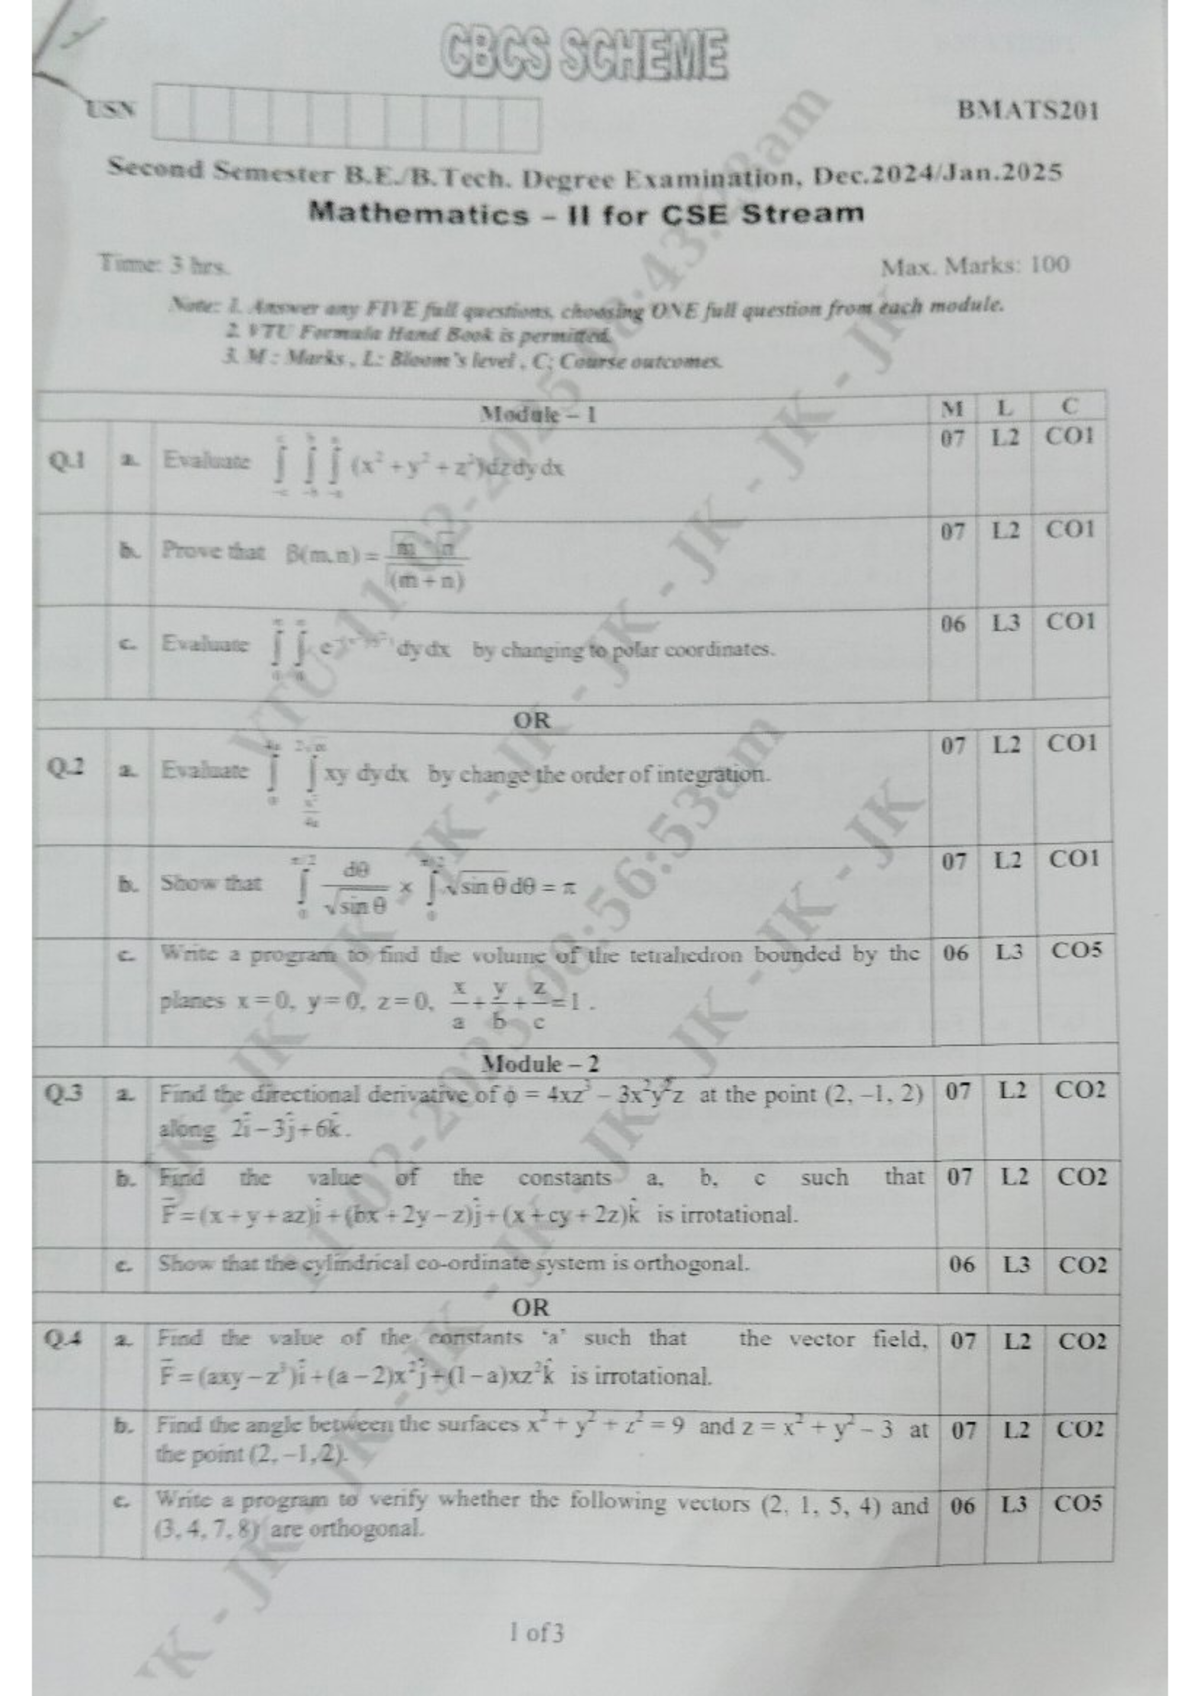 CBCS SCHEME
USN
BMATS201
Second Semester B.E./B.Tech. Degree Examination, Dec.2024/Jan.2025
Mathematics – II for CSE Stream
Time: 3 hrs. Max. Marks: 100
Note: 1. Answer any FIVE full questions, choosing ONE full question from each module.
2. VTU Formula Hand Book is permitted.
3. M : Marks , L: Bloom's level , C: Course outcomes.
Module – 1 M L C
Q.1 a. Evaluate ∫_{-c}^{c} ∫_{-b}^{b} ∫_{-a}^{a} (x² + y² + z²)dzdydx 07 L2 CO1
b. Prove that β(m,n) = Γm Γn / Γ(m + n) 07 L2 CO1
c. Evaluate ∫∫ e dydx by changing to polar coordinates. 06 L3 CO1
OR
Q.2 a. Evaluate ∫_{0}^{4a} ∫_{x²/4a}^{2√ax} xy dydx by change the order of integration. 07 L2 CO1
b. Show that ∫_{0}^{π/2} dθ/√sin θ × ∫_{0}^{π/2} √sin θ dθ = π 07 L2 CO1
c. Write a program to find the volume of the tetrahedron bounded by the 06 L3 CO5
planes x = 0, y = 0, z = 0, x/a + y/b + z/c = 1 .
Module – 2
Q.3 a. Find the directional derivative of ϕ = 4xz³ – 3x²y²z at the point (2, –1, 2) 07 L2 CO2
along 2î – 3ĵ + 6k̂ .
b. Find the value of the constants a, b, c such that 07 L2 CO2
F̄ = (x + y + az)î + (bx + 2y – z)ĵ + (x + cy + 2z)k̂ is irrotational.
c. Show that the cylindrical co-ordinate system is orthogonal. 06 L3 CO2
OR
Q.4 a. Find the value of the constants 'a' such that the vector field, 07 L2 CO2
F̄ = (axy – z³)î + (a – 2)x²ĵ + (1 – a)xz²k̂ is irrotational.
b. Find the angle between the surfaces x² + y² + z² = 9 and z = x² + y² – 3 at 07 L2 CO2
the point (2, –1, 2).
c. Write a program to verify whether the following vectors (2, 1, 5, 4) and 06 L3 CO5
(3, 4, 7, 8) are orthogonal.
1 of 3